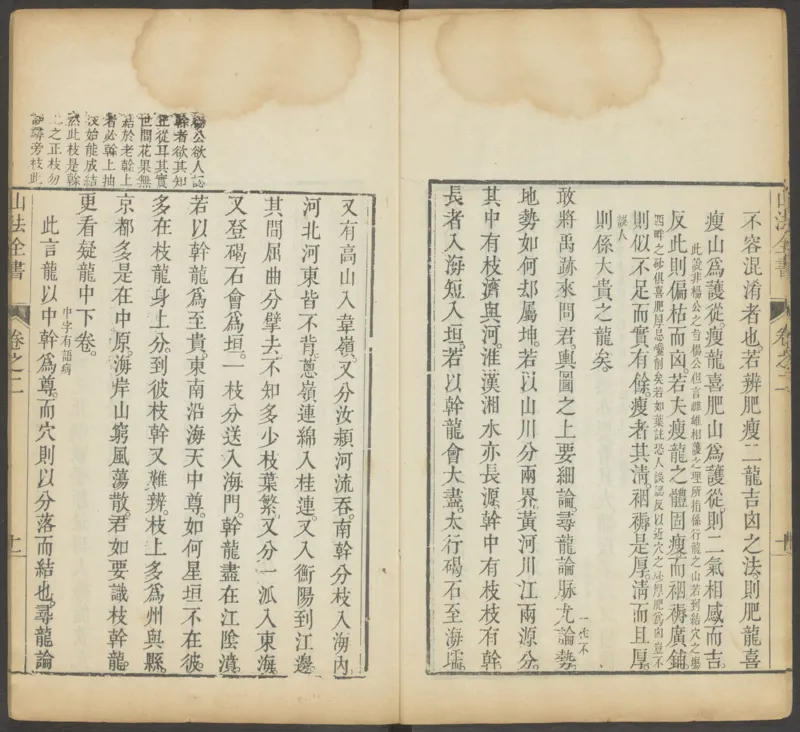 不容混淆者也。若辨肥瘦二龍吉凶之法則肥龍喜
瘦山爲護從。瘦龍喜肥山爲護從。則二氣相感而吉。
此說非楊公之旨楊公但言雌雄相護之理所指係行龍之山若到結穴之塲
反此則偏枯而凶。若夫瘦龍之體固瘦而裀褥廣鋪。
四畔之砂俱喜肥厚忌巉削矣若如葉註恐人誤認反以近穴之砂厚肥爲凶豈不
則似不足而實有餘。瘦者其清。裀褥是厚。清而且厚。
誤人
則係大貴之龍矣。
敢將禹跡來問君。輿圖之上要細論。尋龍論脉尤論勢。一作不
地勢如何却屬坤。若以山川分兩界。黃河川江兩源分。
其中有枝濟與河。淮漢湘水亦長源。幹中有枝枝有幹。
長者入海短入垣。若以幹龍會大盡。太行碣石至海壖。
山法全書
卷之二
十
楊公欲人認
幹者欲其知
正從耳其實
世間花果無
結於老幹上
者必幹上抽
始能成結
然此枝是幹
之正枝勿
尋旁枝此
又有高山入韋嶺。又分汝潁河流吞。南幹分枝入海內。
河北河東皆不背。蔥嶺連綿入桂連。又入衡陽到江邊。
其間屈曲分擘去。不知多少枝葉繁。又分一派入東海。
又登碣石會爲垣。一枝分送入海門。幹龍盡在江陰濆。
若以幹龍爲至貴。東南沿海天中尊。如何星垣不在彼。
多在枝龍身上分。到彼枝幹又難辨。枝上多爲州與縣。
京都多是在中原。海岸山窮風蕩散。君如要識枝幹龍。
更看疑龍中下卷。中字有語病
此言龍以中幹爲尊。而穴則以分落而結也。尋龍論
山法全書
卷之二
十一